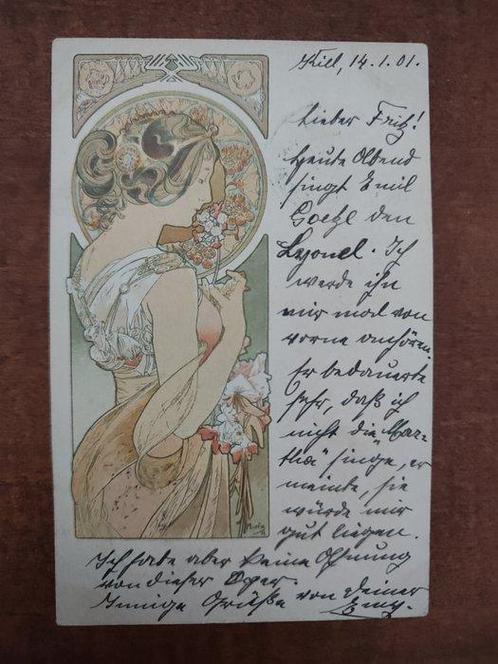 Kiel, 14.1.01.
Lieber Fritz!
Heute Abend
singt Emil
Goetze den
Lyonel. Ich
werde ihn
mir mal von
vorne anhören.
Er bedauerte
sehr, daß ich
nicht die „Mar-
tha" singe, er
meinte, sie
würde mir
gut liegen.
Mucha
Ich habe aber keine Ahnung
von dieser Oper.
Innige Grüße von deiner